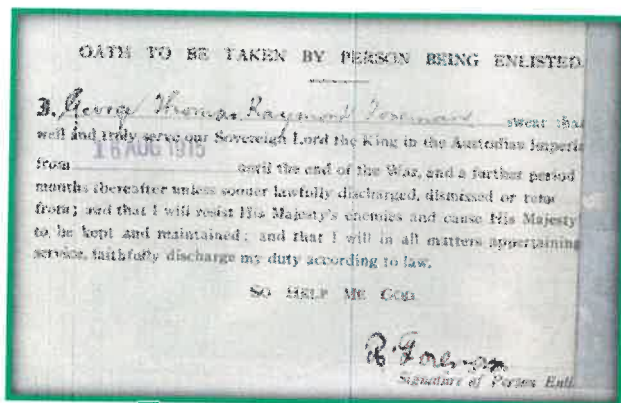 OATH TO BE TAKEN BY PERSON BEING ENLISTED.
I, George Thomas Raymond swear that
well and truly serve our Sovereign Lord the King in the Australian Imperia
16 AUG 1915
from until the end of the War, and a further period
months thereafter unless sooner lawfully discharged, dismissed or remo
from; and that I will resist His Majesty's enemies and cause His Majesty'
to be kept and maintained; and that I will in all matters appertaining
service, faithfully discharge my duty according to law.
SO HELP ME GOD.
R Foreman
Signature of Person Enli